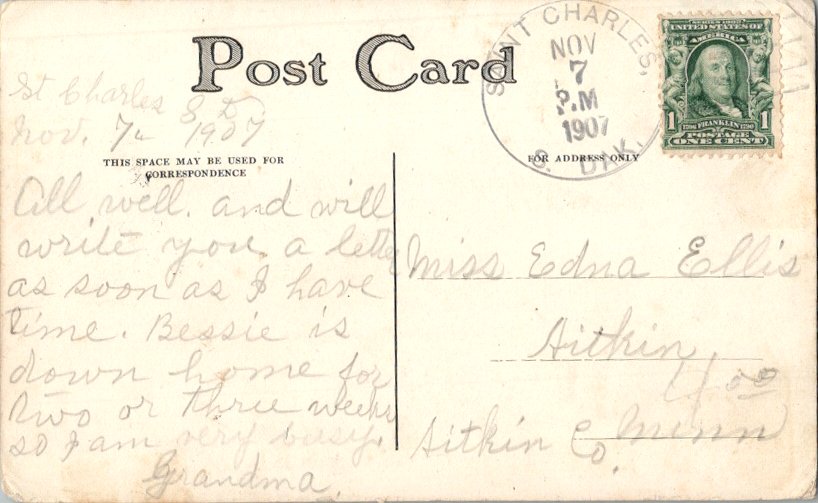 Post Card
St Charles S D
Nov. 7th 1907
THIS SPACE MAY BE USED FOR
CORRESPONDENCE
All well. and will
write you a letter
as soon as I have
time. Bessie is
down home for
two or three weeks
so I am very busy.
Grandma.
SAINT CHARLES,
NOV
7
P.M
1907
S. DAK.
SERIES 1902
UNITED STATES OF
AMERICA
1706 FRANKLIN 1790
1 POSTAGE 1
ONE CENT
FOR ADDRESS ONLY
Miss Edna Ellis
Aitkin
4.00
Aitkin Co. Minn